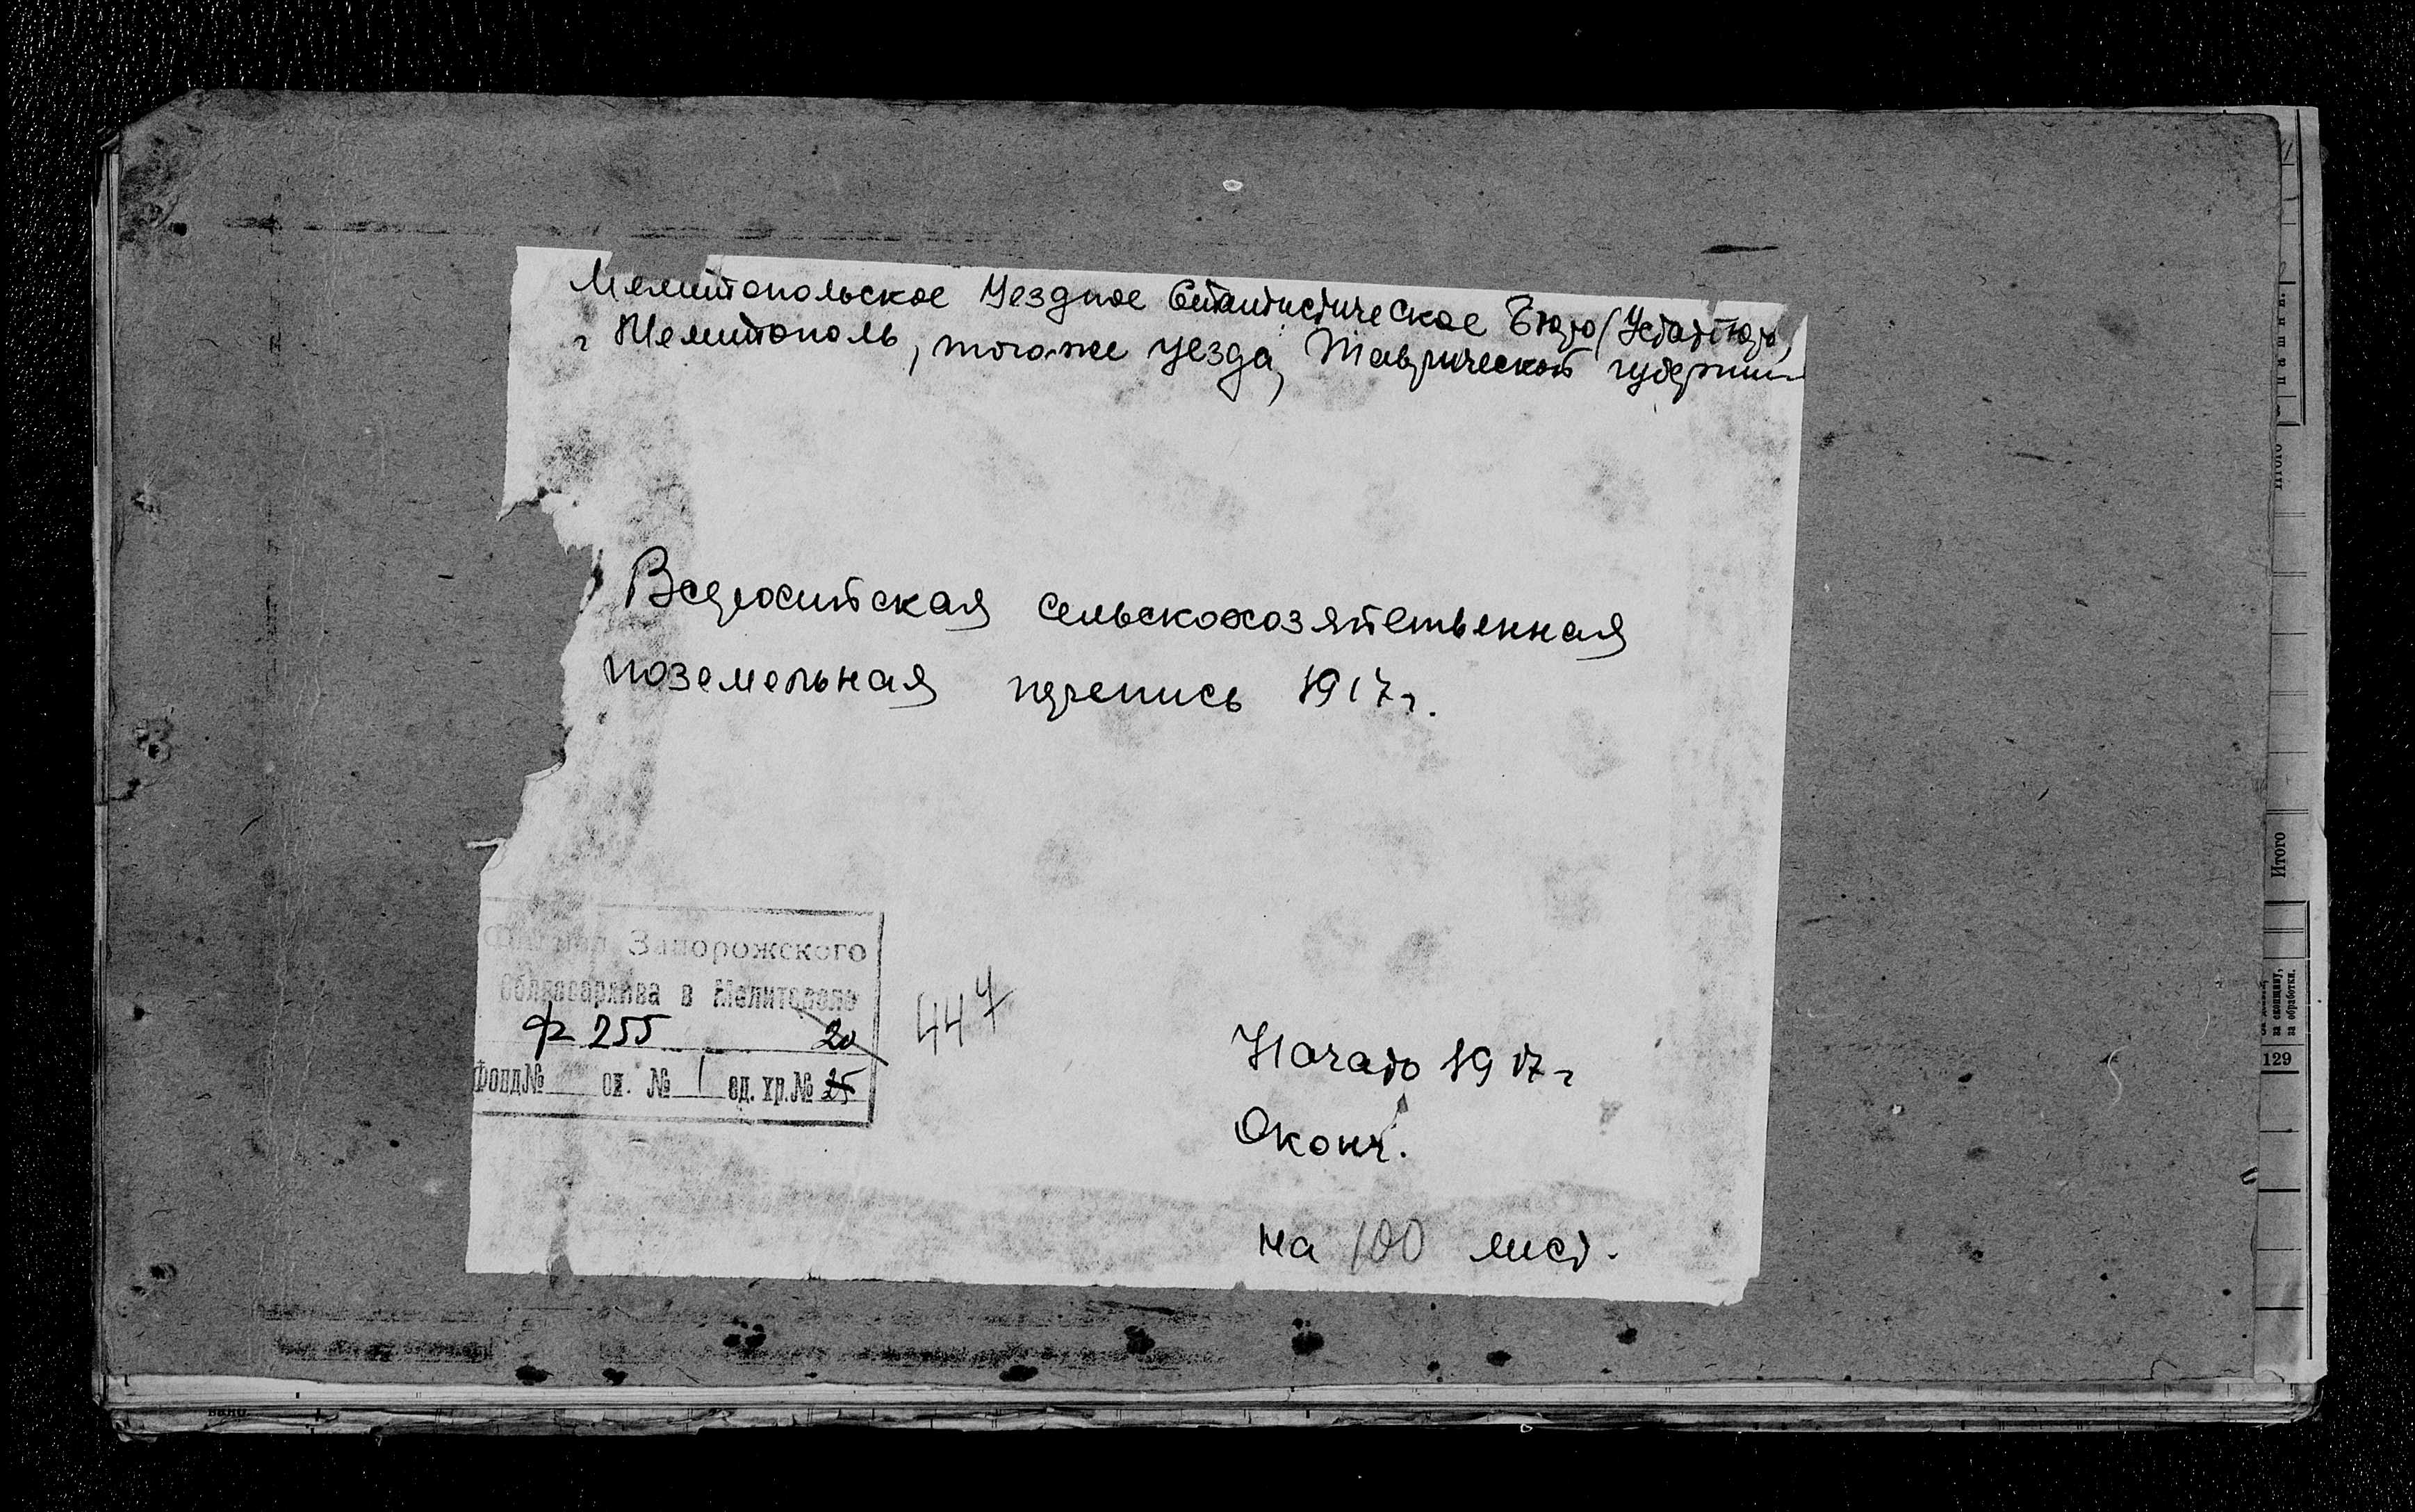 Мелитопольское Уездное Статистическое Бюро (Устатбюро)
г Мелитополь, того-же уезда, Таврической губернии
Всеросийская сельскохозяйственная
поземельная перепись 1917 г.
Филиал Запорожского
Облгосархива в Мелитополе
ф 255 20
Фонд № оп. № 1 ед. хр. № 25
447
Начато 1917 г
Оконч.
на 100 лист.
Итого
за обработки.
129